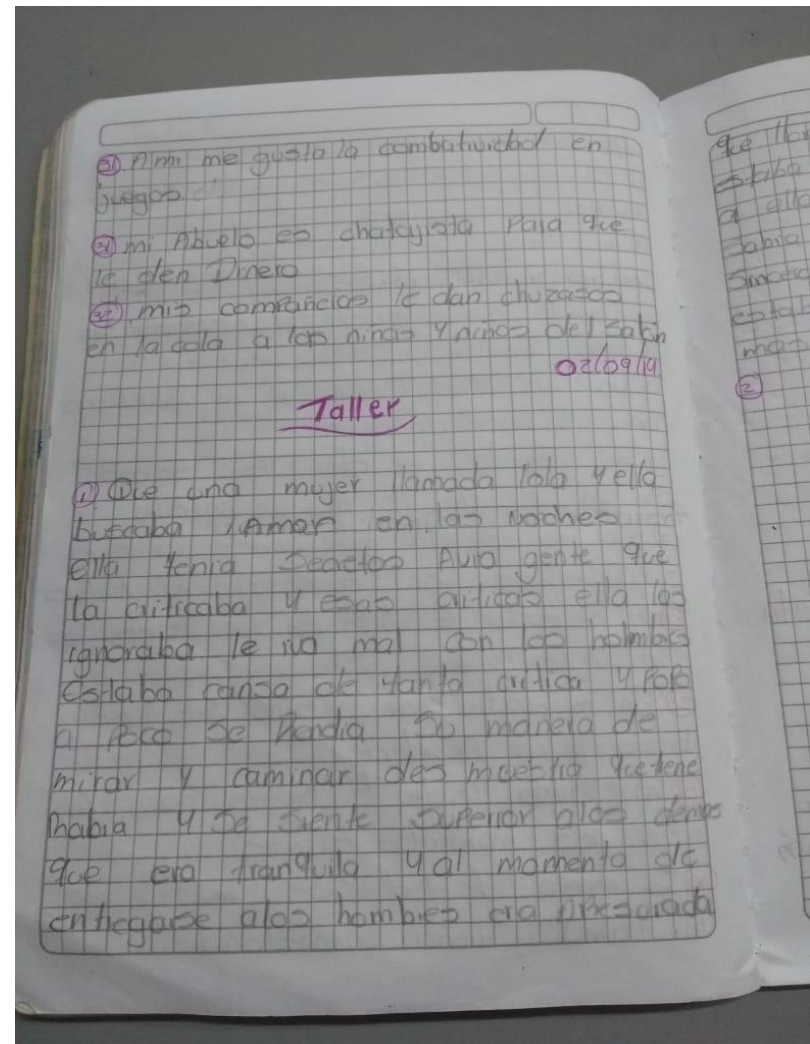 31 A mi me gusta la combatividad en
juegos
31 mi Abuelo es chatajista Para que
le den Dinero
32 mis compañeros le dan chuzasos
en la cola a las niñas y niños del salon
02/09/19
Taller
1 Que una mujer llamada lola y ella
buscaba Amor en las noches
ella tenia secretos Avia gente que
la criticaba y esas criticas ella las
ignoraba le iva mal con los holmbres
Estaba cansa de tanta critica y
a poco se Rendia su manera de
mirar y caminar
habia y se siente superior alos demas
que era tranquila y al momento de
entregarse alos hombres era
que
estaba
a ella
Sabia
2